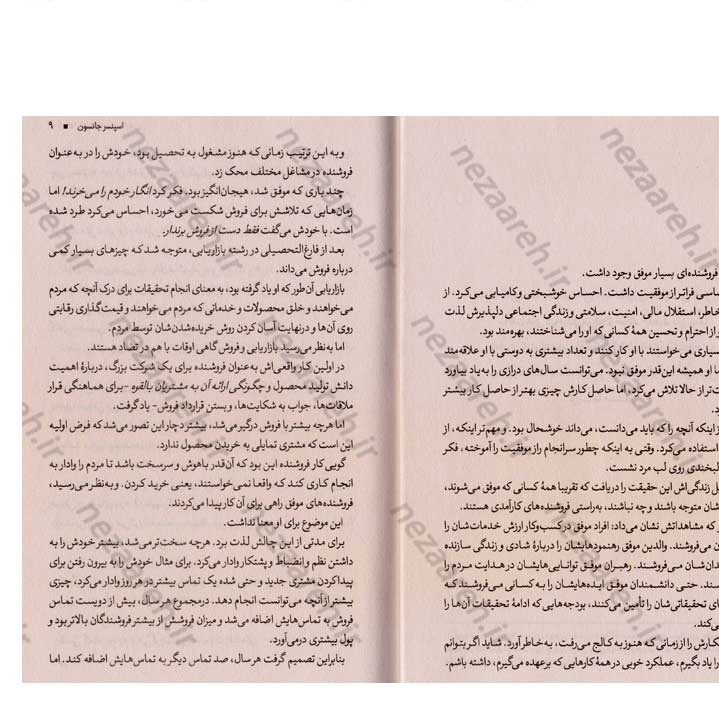 فروشنده‌ای بسیار موفق وجود داشت.
اسی فراتر از موفقیت داشت. احساس خوشبختی و کامیابی می‌کرد. از
خاطر، استقلال مالی، امنیت، سلامتی و زندگی اجتماعی دلپذیرش لذت
از احترام و تحسین همهٔ کسانی که او را می‌شناختند، بهره‌مند بود.
سیاری می‌خواستند با او کار کنند و تعداد بیشتری به دوستی با او علاقه‌مند
ا او همیشه این‌قدر موفق نبود. می‌توانست سال‌های درازی را به یاد بیاورد
ت‌تر از حالا تلاش می‌کرد، اما حاصل کارش چیزی بهتر از حاصل کار بیشتر
د.
ز اینکه آنچه را که باید می‌دانست، می‌داند خوشحال بود. و مهم‌تر اینکه، از
استفاده می‌کرد. وقتی به اینکه چطور سرانجام راز موفقیت را آموخته، فکر
لبخندی روی لب مرد نشست.
ل زندگی‌اش این حقیقت را دریافت که تقریبا همهٔ کسانی که موفق می‌شوند،
شان متوجه باشند و چه نباشند، به‌راستی فروشنده‌های کارآمدی هستند.
ر که مشاهداتش نشان می‌داد: افراد موفق در کسب‌وکار ارزش خدمات‌شان را
ن می‌فروشند. والدین موفق رهنمودهایشان را دربارهٔ شادی و زندگی سازنده
دان‌شان می‌فروشند. رهبران موفق توانایی‌هایشان در هدایت مردم را
سند. حتی دانشمندان موفق ایده‌هایشان را به کسانی می‌فروشند که
ی تحقیقاتی‌شان را تأمین می‌کنند، بودجه‌هایی که ادامهٔ تحقیقات آن‌ها را
ی‌کند.
کارش را از زمانی که هنوز به کالج می‌رفت، به خاطر آورد. شاید اگر بتوانم
را یاد بگیرم، عملکرد خوبی در همهٔ کارهایی که برعهده می‌گیرم، داشته باشم.
اسپنسر جانسون ■ ۹
و به این ترتیب زمانی که هنوز مشغول به تحصیل بود، خودش را در به‌عنوان
فروشنده در مشاغل مختلف محک زد.
چند باری که موفق شد، هیجان‌انگیز بود. فکر کرد انگار خودم را می‌خرند! اما
زمان‌هایی که تلاشش برای فروش شکست می‌خورد، احساس می‌کرد طرد شده
است. با خودش می‌گفت فقط دست از فروش برندار.
بعد از فارغ‌التحصیلی در رشته بازاریابی، متوجه شد که چیزهای بسیار کمی
درباره فروش می‌داند.
بازاریابی آن‌طور که او یاد گرفته بود، به معنای انجام تحقیقات برای درک آنچه که مردم
می‌خواهند و خلق محصولات و خدماتی که مردم می‌خواهند و قیمت‌گذاری رقابتی
روی آن‌ها و درنهایت آسان کردن روش خریده‌شدن‌شان توسط مردم.
اما به‌نظر می‌رسید بازاریابی و فروش گاهی اوقات با هم در تضاد هستند.
در اولین کار واقعی‌اش به‌عنوان فروشنده برای یک شرکت بزرگ، دربارهٔ اهمیت
دانش تولید محصول و چگونگی ارائه آن به مشتریان بالقوه -برای هماهنگی قرار
ملاقات‌ها، جواب به شکایت‌ها، و بستن قرارداد فروش- یاد گرفت.
اما هرچه بیشتر با فروش درگیر می‌شد، بیشتر دچار این تصور می‌شد که فرض اولیه
این است که مشتری تمایلی به خریدن محصول ندارد.
گویی کار فروشنده این بود که آن‌قدر باهوش و سرسخت باشد تا مردم را وادار به
انجام کاری کند که واقعا نمی‌خواستند، یعنی خرید کردن. و به‌نظر می‌رسید،
فروشنده‌های موفق راهی برای آن کار پیدا می‌کردند.
این موضوع برای او معنا نداشت.
برای مدتی از این چالش لذت برد. هرچه سخت‌تر می‌شد، بیشتر خودش را به
داشتن نظم و انضباط و پشتکار وادار می‌کرد. برای مثال خودش را به بیرون رفتن برای
پیدا کردن مشتری جدید و حتی شده یک تماس بیشتر در هر روز وادار می‌کرد، چیزی
بیشتر از آنچه می‌توانست انجام دهد. درمجموع هر سال، بیش از دویست تماس
فروش به تماس‌هایش اضافه می‌شد و میزان فروشش از بیشتر فروشندگان بالاتر بود و
پول بیشتری درمی‌آورد.
بنابراین تصمیم گرفت هر سال، صد تماس دیگر به تماس‌هایش اضافه کند. اما
nezaareh.ir